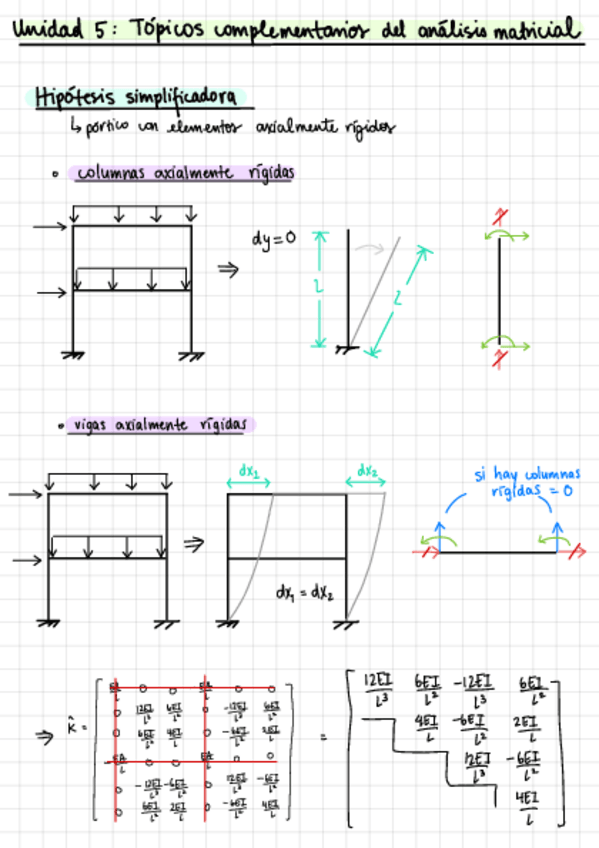 Unidad 5: Tópicos complementarios del análisis matricial
Hipótesis simplificadora
↳ pórtico con elementos axialmente rígidos
• columnas axialmente rígidas
⇒ dy=0
L
L
• vigas axialmente rígidas
dx₁ dx₂
si hay columnas
rígidas = 0
⇒
dx₁ = dx₂
⇒ k̂ =
EA/L 0 0 EA/L 0 0
0 12EI/L³ 6EI/L² 0 -12EI/L³ 6EI/L²
0 6EI/L² 4EI/L 0 -6EI/L² 2EI/L
-EA/L 0 0 EA/L 0 0
0 -12EI/L³ -6EI/L² 0 12EI/L³ -6EI/L²
0 6EI/L² 2EI/L 0 -6EI/L² 4EI/L
=
12EI/L³ 6EI/L² -12EI/L³ 6EI/L²
4EI/L -6EI/L² 2EI/L
12EI/L³ -6EI/L²
4EI/L